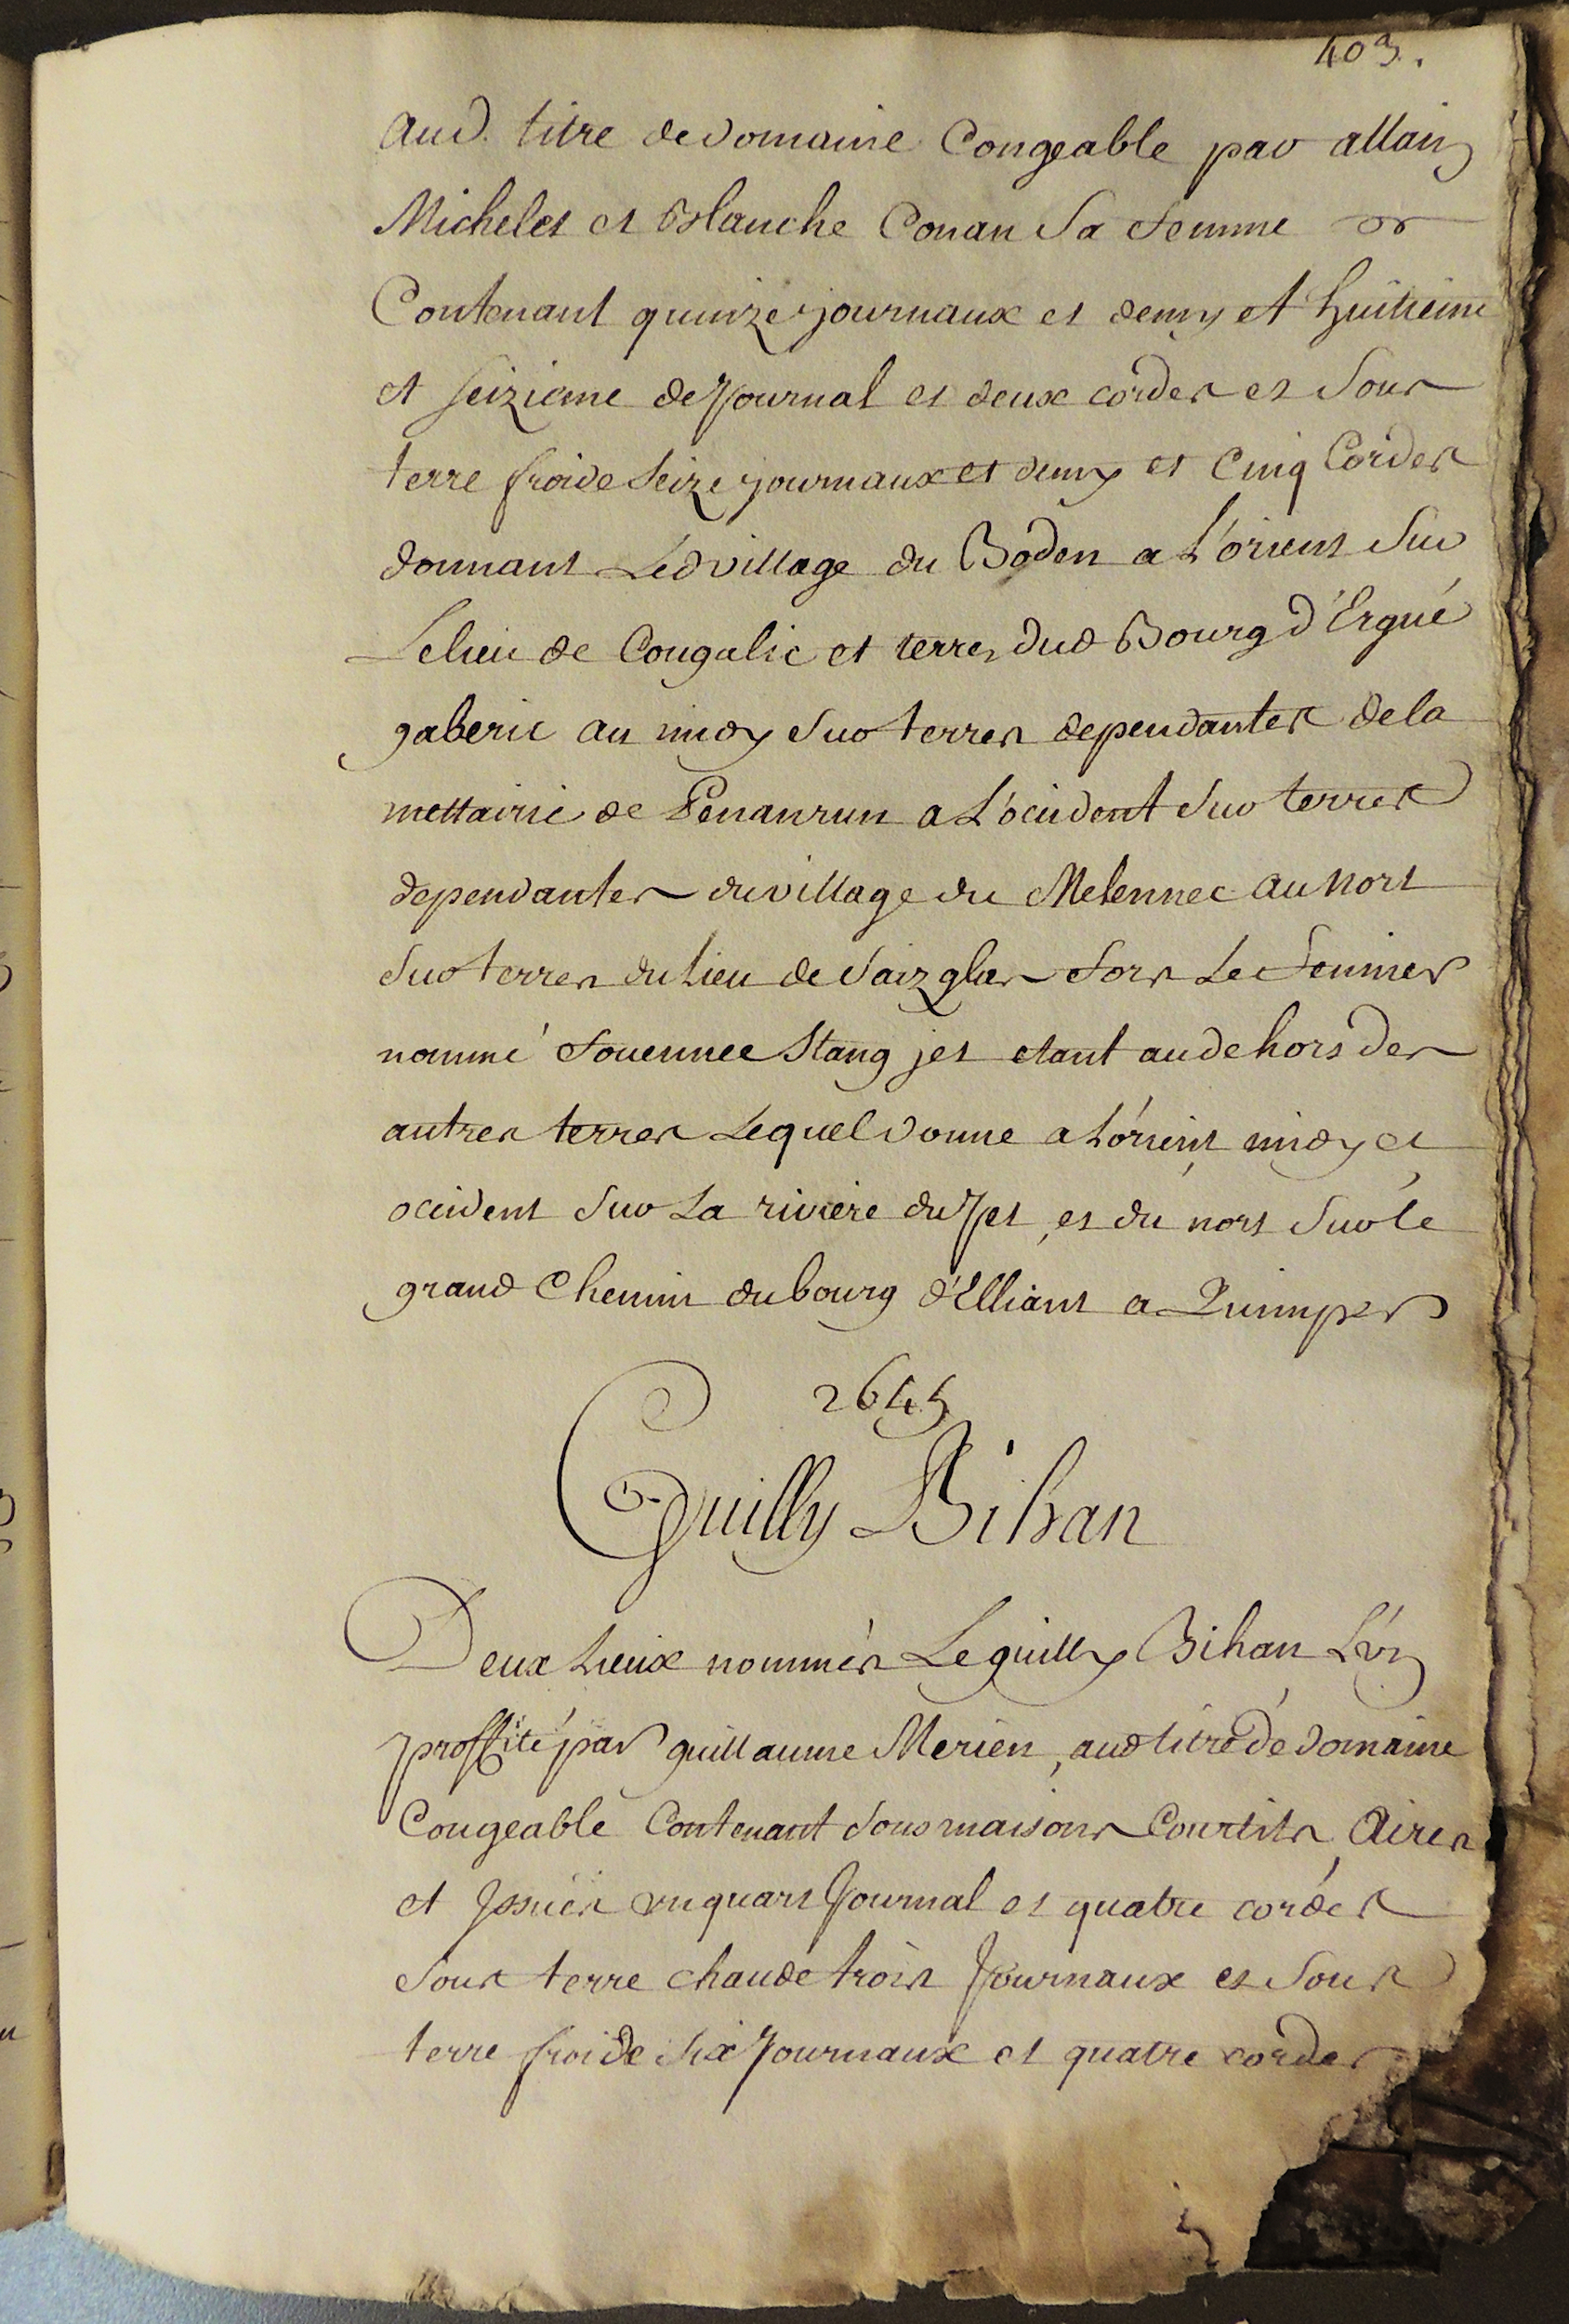 403.
aud. titre de domaine Congeable par allain
Michelet et Blanche Conan sa femme
Contenant quinze journaux et demy et huitieme
et seizieme de journal et deux cordes et sous
terre froide seize journaux et demy et cinq Cordes
donnant Led village du Boden a L'orient sur
Le lieu de Congalic et terres dud Bourg d'Ergué
gaberic au midy sur terres dependantes de la
mettairie de Penanrun a L'ocident sur terres
dependantes du village du Melennec au nort
sur terres du lieu de Saizglas fors Le fennier
nommé fouennec Stang jet etant au dehors des
autres terres Lequel donne a L'orient midy et
ocident sur La riviere du Jet, et du nort sur le
grand Chemin du bourg d'Elliant a Quimper
2645
Guilly Bihan
Deux Lieux nommés Le guilly Bihan L'un
proffité par guillaume Merien, aud titre de domaine
Congeable Contenant sous maisons Courtils, Aires
et Issües un quart Journal et quatre cordes
sous terre chaude trois Journaux et sous
terre froide six Journaux et quatre cordes